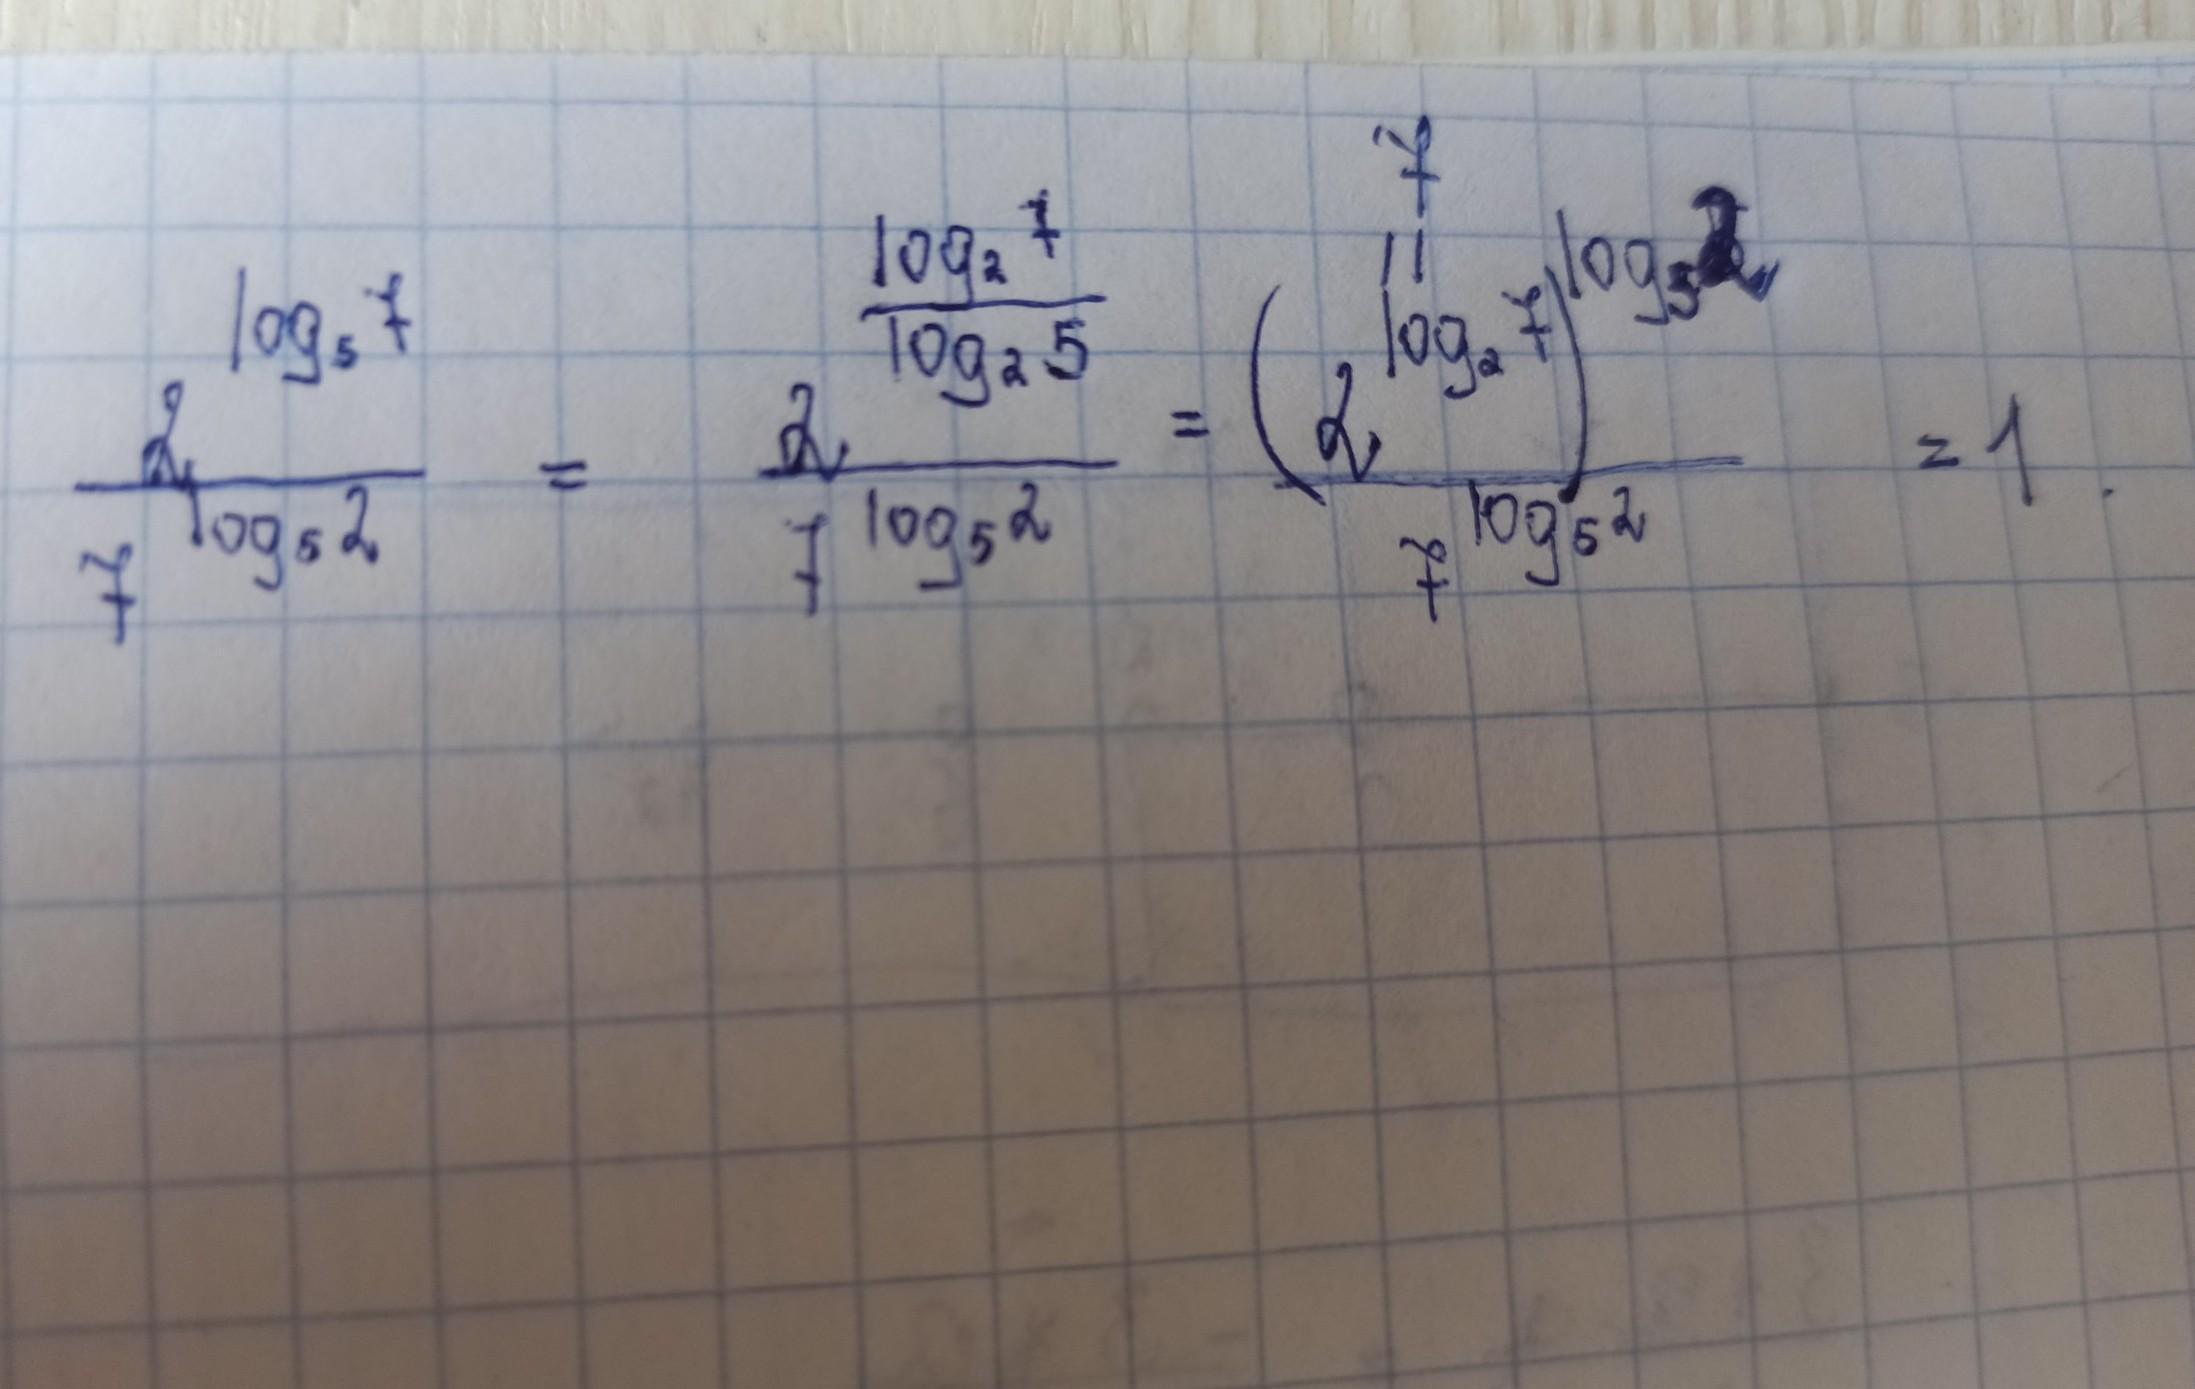 2^{log_5 7} / 7^{log_5 2} = 2^{log_2 7 / log_2 5} / 7^{log_5 2} = (2^{log_2 7})^{log_5 2} / 7^{log_5 2} = 1.
7
||